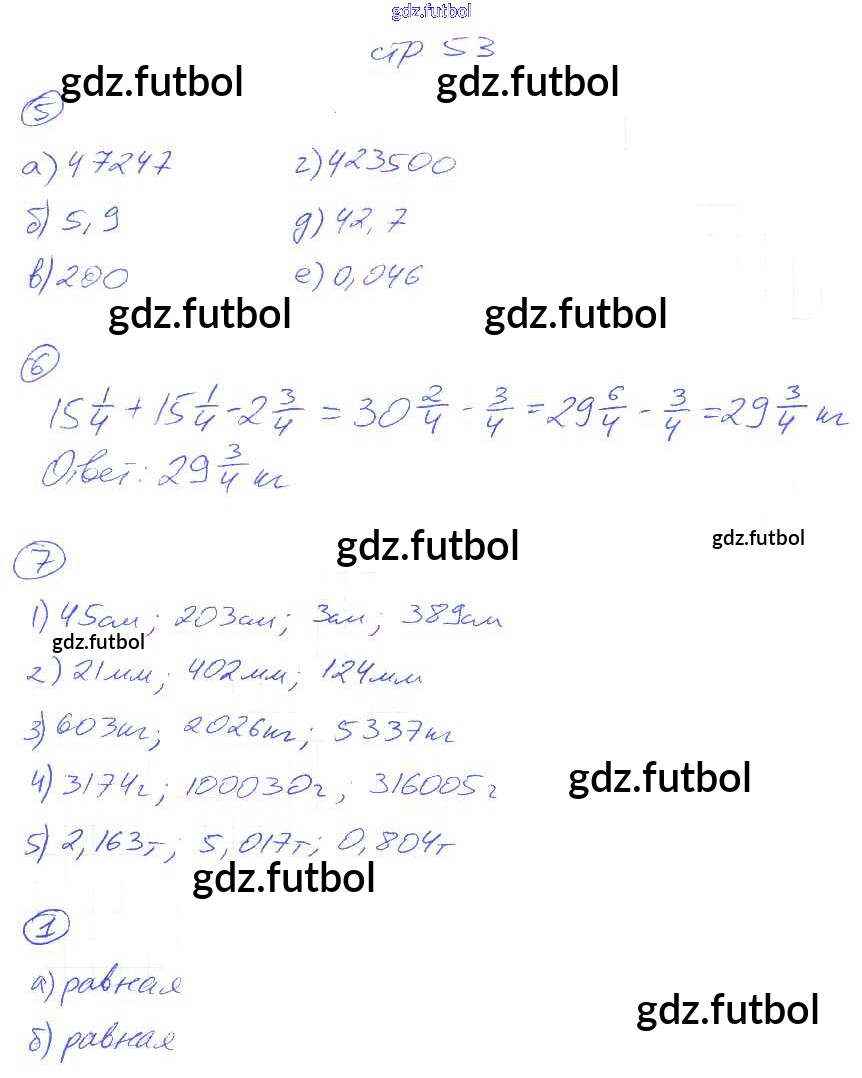 gdz.futbol
стр 53
gdz.futbol gdz.futbol
5
а) 47247 г) 423500
б) 5,9 д) 42,7
в) 200 е) 0,046
gdz.futbol gdz.futbol
6
15 1/4 + 15 1/4 - 2 3/4 = 30 2/4 - 3/4 = 29 6/4 - 3/4 = 29 3/4 кг
Ответ: 29 3/4 кг
gdz.futbol gdz.futbol
7
1) 45см; 203см; 3см; 389см
gdz.futbol
2) 21мм; 402мм; 124мм
3) 603кг; 2026кг; 5337кг
4) 3174г; 100030г; 316005г
gdz.futbol
5) 2,163т; 5,017т; 0,804т
gdz.futbol
1
а) равная
gdz.futbol
б) равная